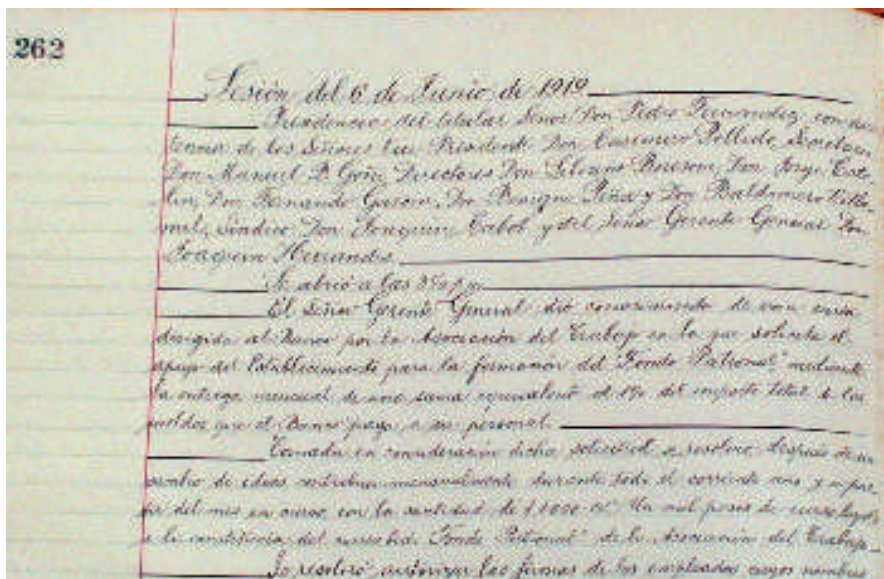 262
Sesión del 6 de Junio de 1919
Presidencia del titular Señor Don Pedro Fernandez con asis
tencia de los Señores Vice Presidente Don Casimiro Polledo, Secretario
Don Manuel P. Goñi, Directores Don Silvano Don Jorge
Don Fernando García, Don Benigno Piña y Don Baldomero Villa
mil, Síndico Don Joaquin Cabot y del Señor Gerente General Don
Joaquin Hernandez
Se abrió a las
El Señor Gerente General dió conocimiento de una
dirigida al Banco por la Asociación del Trabajo en la que solicita el
apoyo del Establecimiento para la formación del "Fondo Patronal" mediante
la entrega mensual de una suma equivalente al 1% del importe total de los
sueldos que el Banco paga a su personal.
Tomada en consideración dicha solicitud se resolvió después de un
cambio de ideas contribuir mensualmente durante todo el corriente año y a par
tir del mes en curso, con la cantidad de $ 1.000 Un mil pesos de curso legal
a la constitución del "Fondo Patronal" de la Asociación del Trabajo
Se resolvió autorizar las firmas de los empleados cuyos nombres